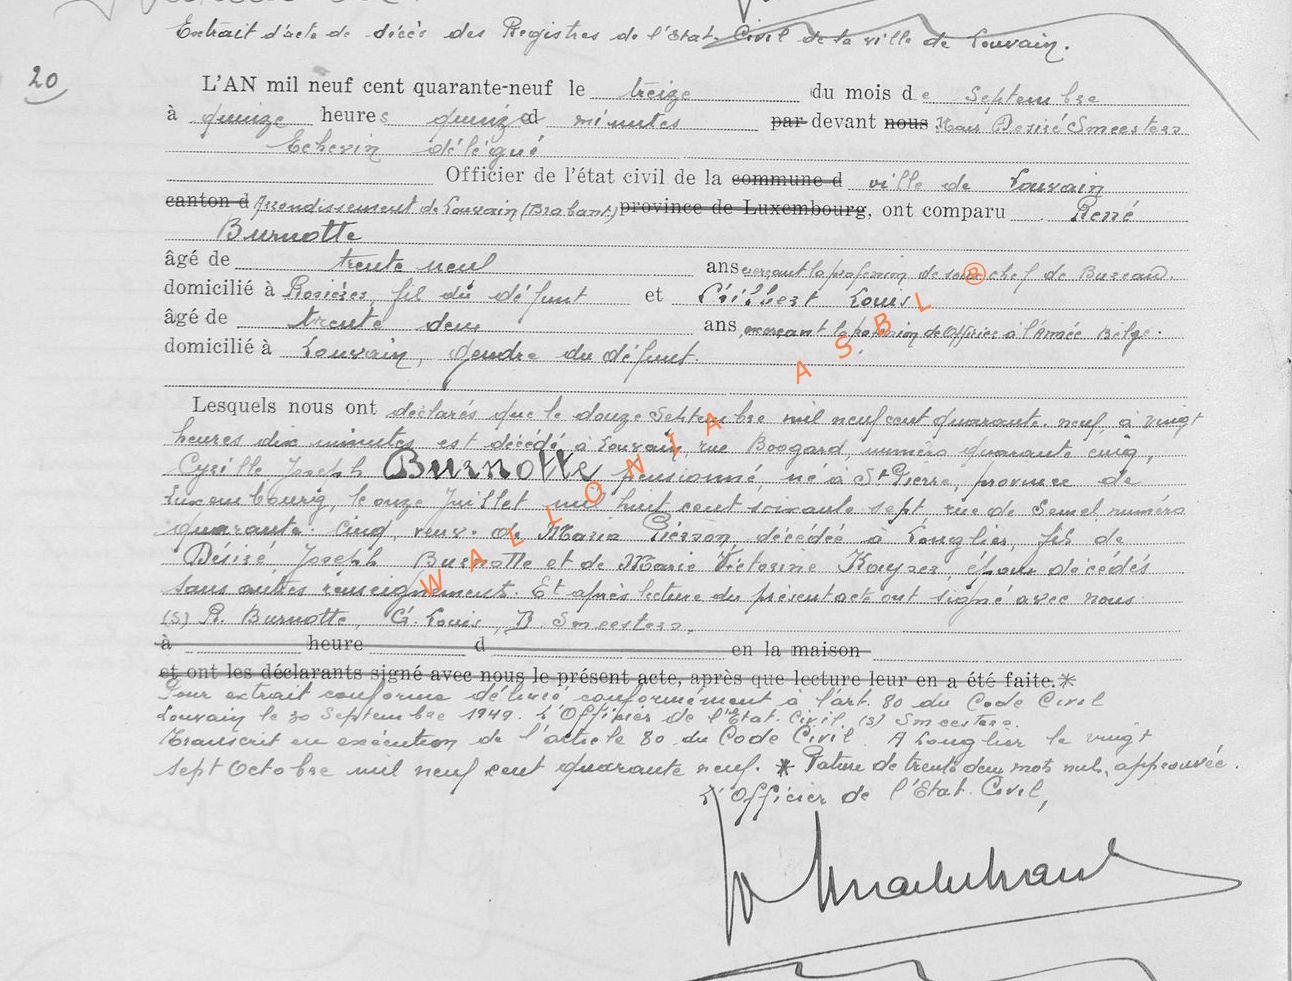 Extrait d'acte de décès des Registres de l'Etat Civil de la ville de Louvain.
20
L'AN mil neuf cent quarante-neuf le treize du mois de Septembre
à quinze heures quinze d minutes par devant nous Nous Desiré Smeesters
Echevin délégué
Officier de l'état civil de la commune d ville de Louvain
canton d Arrondissement de Louvain (Brabant) province de Luxembourg, ont comparu René
Burnotte
âgé de trente neuf ans exerçant la profession de sous chef de Bureau.
domicilié à Rosières, fils du défunt et Louis
âgé de trente deux ans exerçant la profession de Officier à l'Armée Belge.
domicilié à Louvain, gendre du défunt.
Lesquels nous ont déclarés que le douze Septembre mil neuf cent quarante-neuf, à vingt
heures dix minutes est décédé à Louvain, rue Boogard, numéro quarante cinq,
Cyrille Joseph Burnotte pensionné, né à St Pierre, province de
Luxembourg, le onze Juillet mil huit cent soixante sept, rue de Semel, numéro
quarante-cinq, veuf de Maria Pierson, décédée à Longlier, fils de
Désiré Joseph Burnotte et de Marie Victorine Kayser, époux décédés
sans autres renseignements. Et après lecture du présent acte ont signé avec nous
(S) R. Burnotte, G. Louis, D. Smeesters.
à heure d en la maison
et ont les déclarants signé avec nous le présent acte, après que lecture leur en a été faite.*
Pour extrait conforme délivré conformément à l'art. 80 du Code Civil
Louvain le 30 Septembre 1949. L'Officier de l'Etat-Civil (S) Smeesters.
Transcrit en exécution de l'article 80 du Code Civil. A Longlier le vingt
sept Octobre mil neuf cent quarante neuf. * Rature de trente deux mots nuls, approuvée.
L'Officier de l'Etat-Civil,
WALLONIA ASBL ®